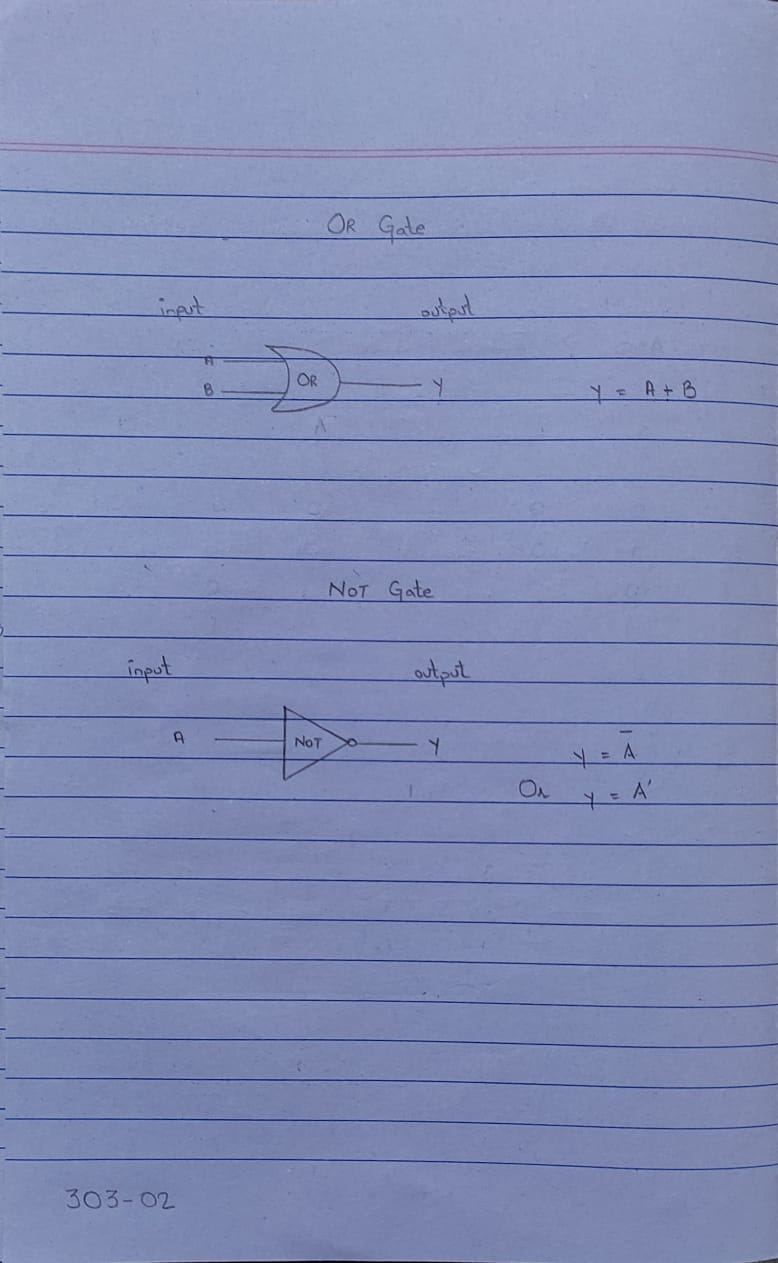 OR Gate
input output
A
B OR Y Y = A + B
NOT Gate
input output
A NOT Y Y = A̅
Or Y = A'
303-02